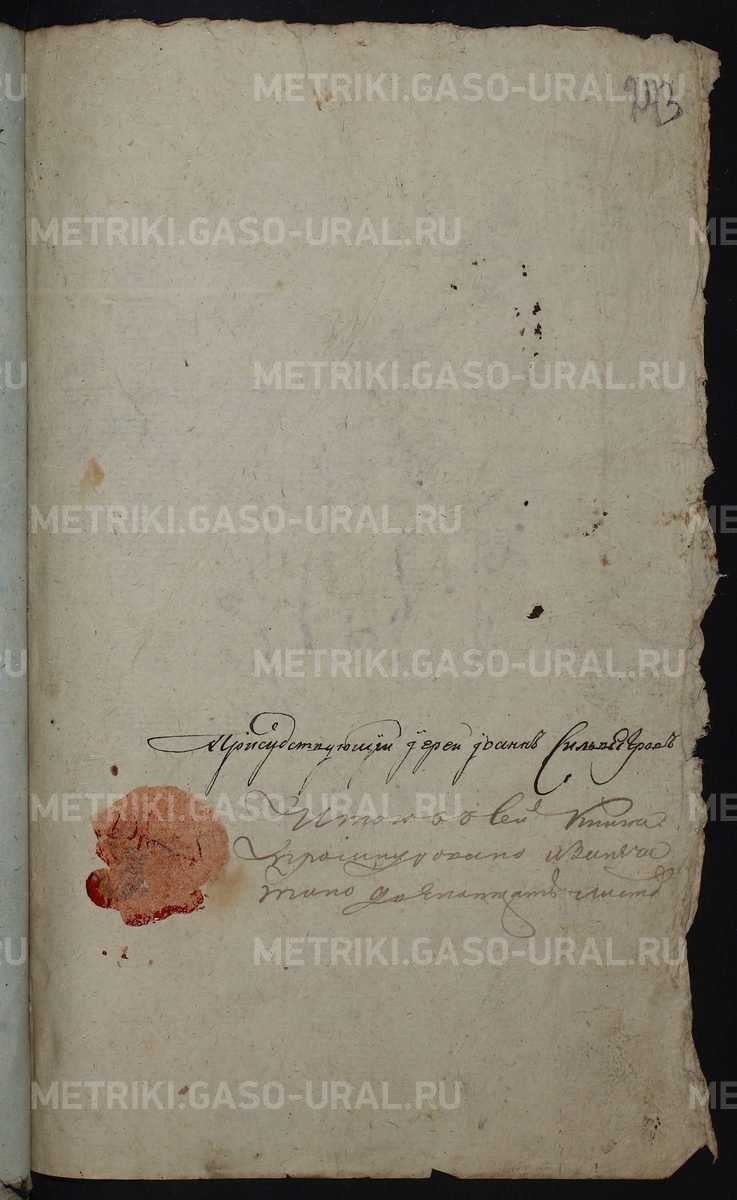 METRIKI.GASO-URAL.RU
243
METRIKI.GASO-URAL.RU
METRIKI.GASO-URAL.RU
METRIKI.GASO-URAL.RU
METRIKI.GASO-URAL.RU
Присудствующий Иерей Иоаннъ Сильвестровъ
Итого всей книга
прошнуровано изапеча
тано двенатцать листо
METRIKI.GASO-URAL.RU
METRIKI.GASO-URAL.RU
METRIKI.GASO-URAL.RU